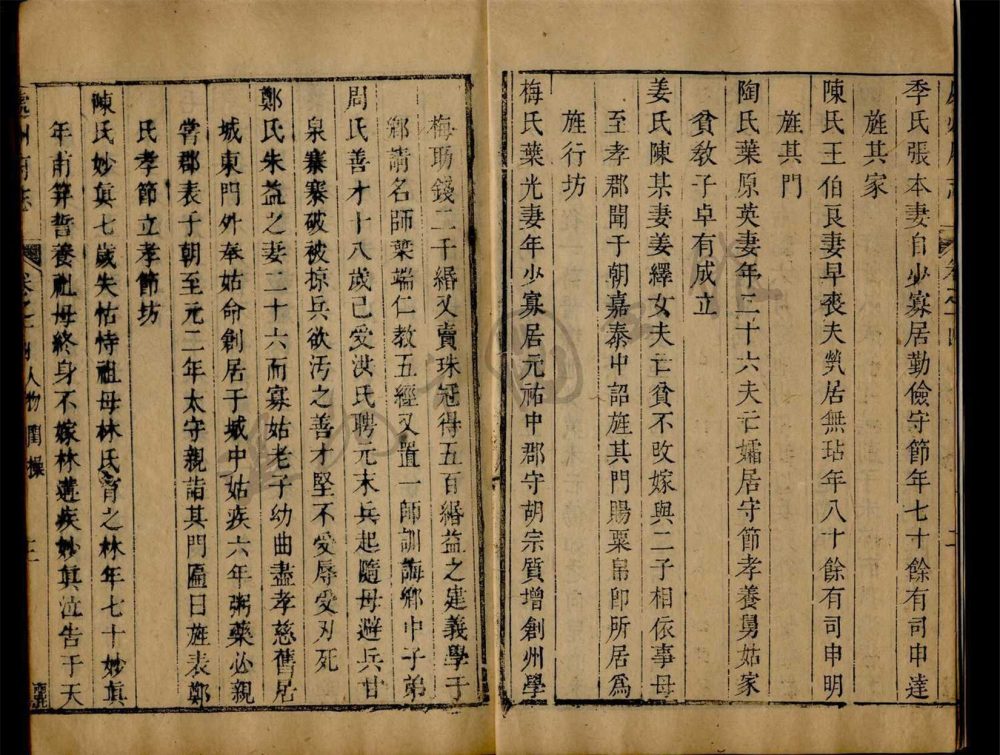 季氏張本妻自少寡居勤儉守節年七十餘有司申達
旌其家
陳氏王伯良妻早喪夫㷀居無玷年八十餘有司申明
旌其門
陶氏葉原英妻年三十六夫亡孀居守節孝養舅姑家
貧敎子卓有成立
姜氏陳某妻姜繹女夫亡貧不改嫁與二子相依事母
至孝郡聞于朝嘉泰中詔旌其門賜粟帛卽所居爲
旌行坊
梅氏葉光妻年少寡居元祐中郡守胡宗質增創州學
梅助錢二千緡又賣珠冠得五百緡益之建義學于
鄉請名師葉端仁教五經又置一師訓誨鄉中子弟
周氏善才十八歲已受洪氏聘元末兵起隨母避兵甘
泉寨寨破被掠兵欲汚之善才堅不受辱受刃死
鄭氏朱益之妻二十六而寡姑老子幼曲盡孝慈舊居
城東門外奉姑命創居于城中姑疾六年粥藥必親
嘗郡表于朝至元二年太守親詣其門匾曰旌表鄭
氏孝節立孝節坊
陳氏妙眞七歲失怙恃祖母林氏育之林年七十妙眞
年甫笄誓養祖母終身不嫁林遘疾妙眞泣告于天
處州府志
卷之十四 人物閨操
三
麗